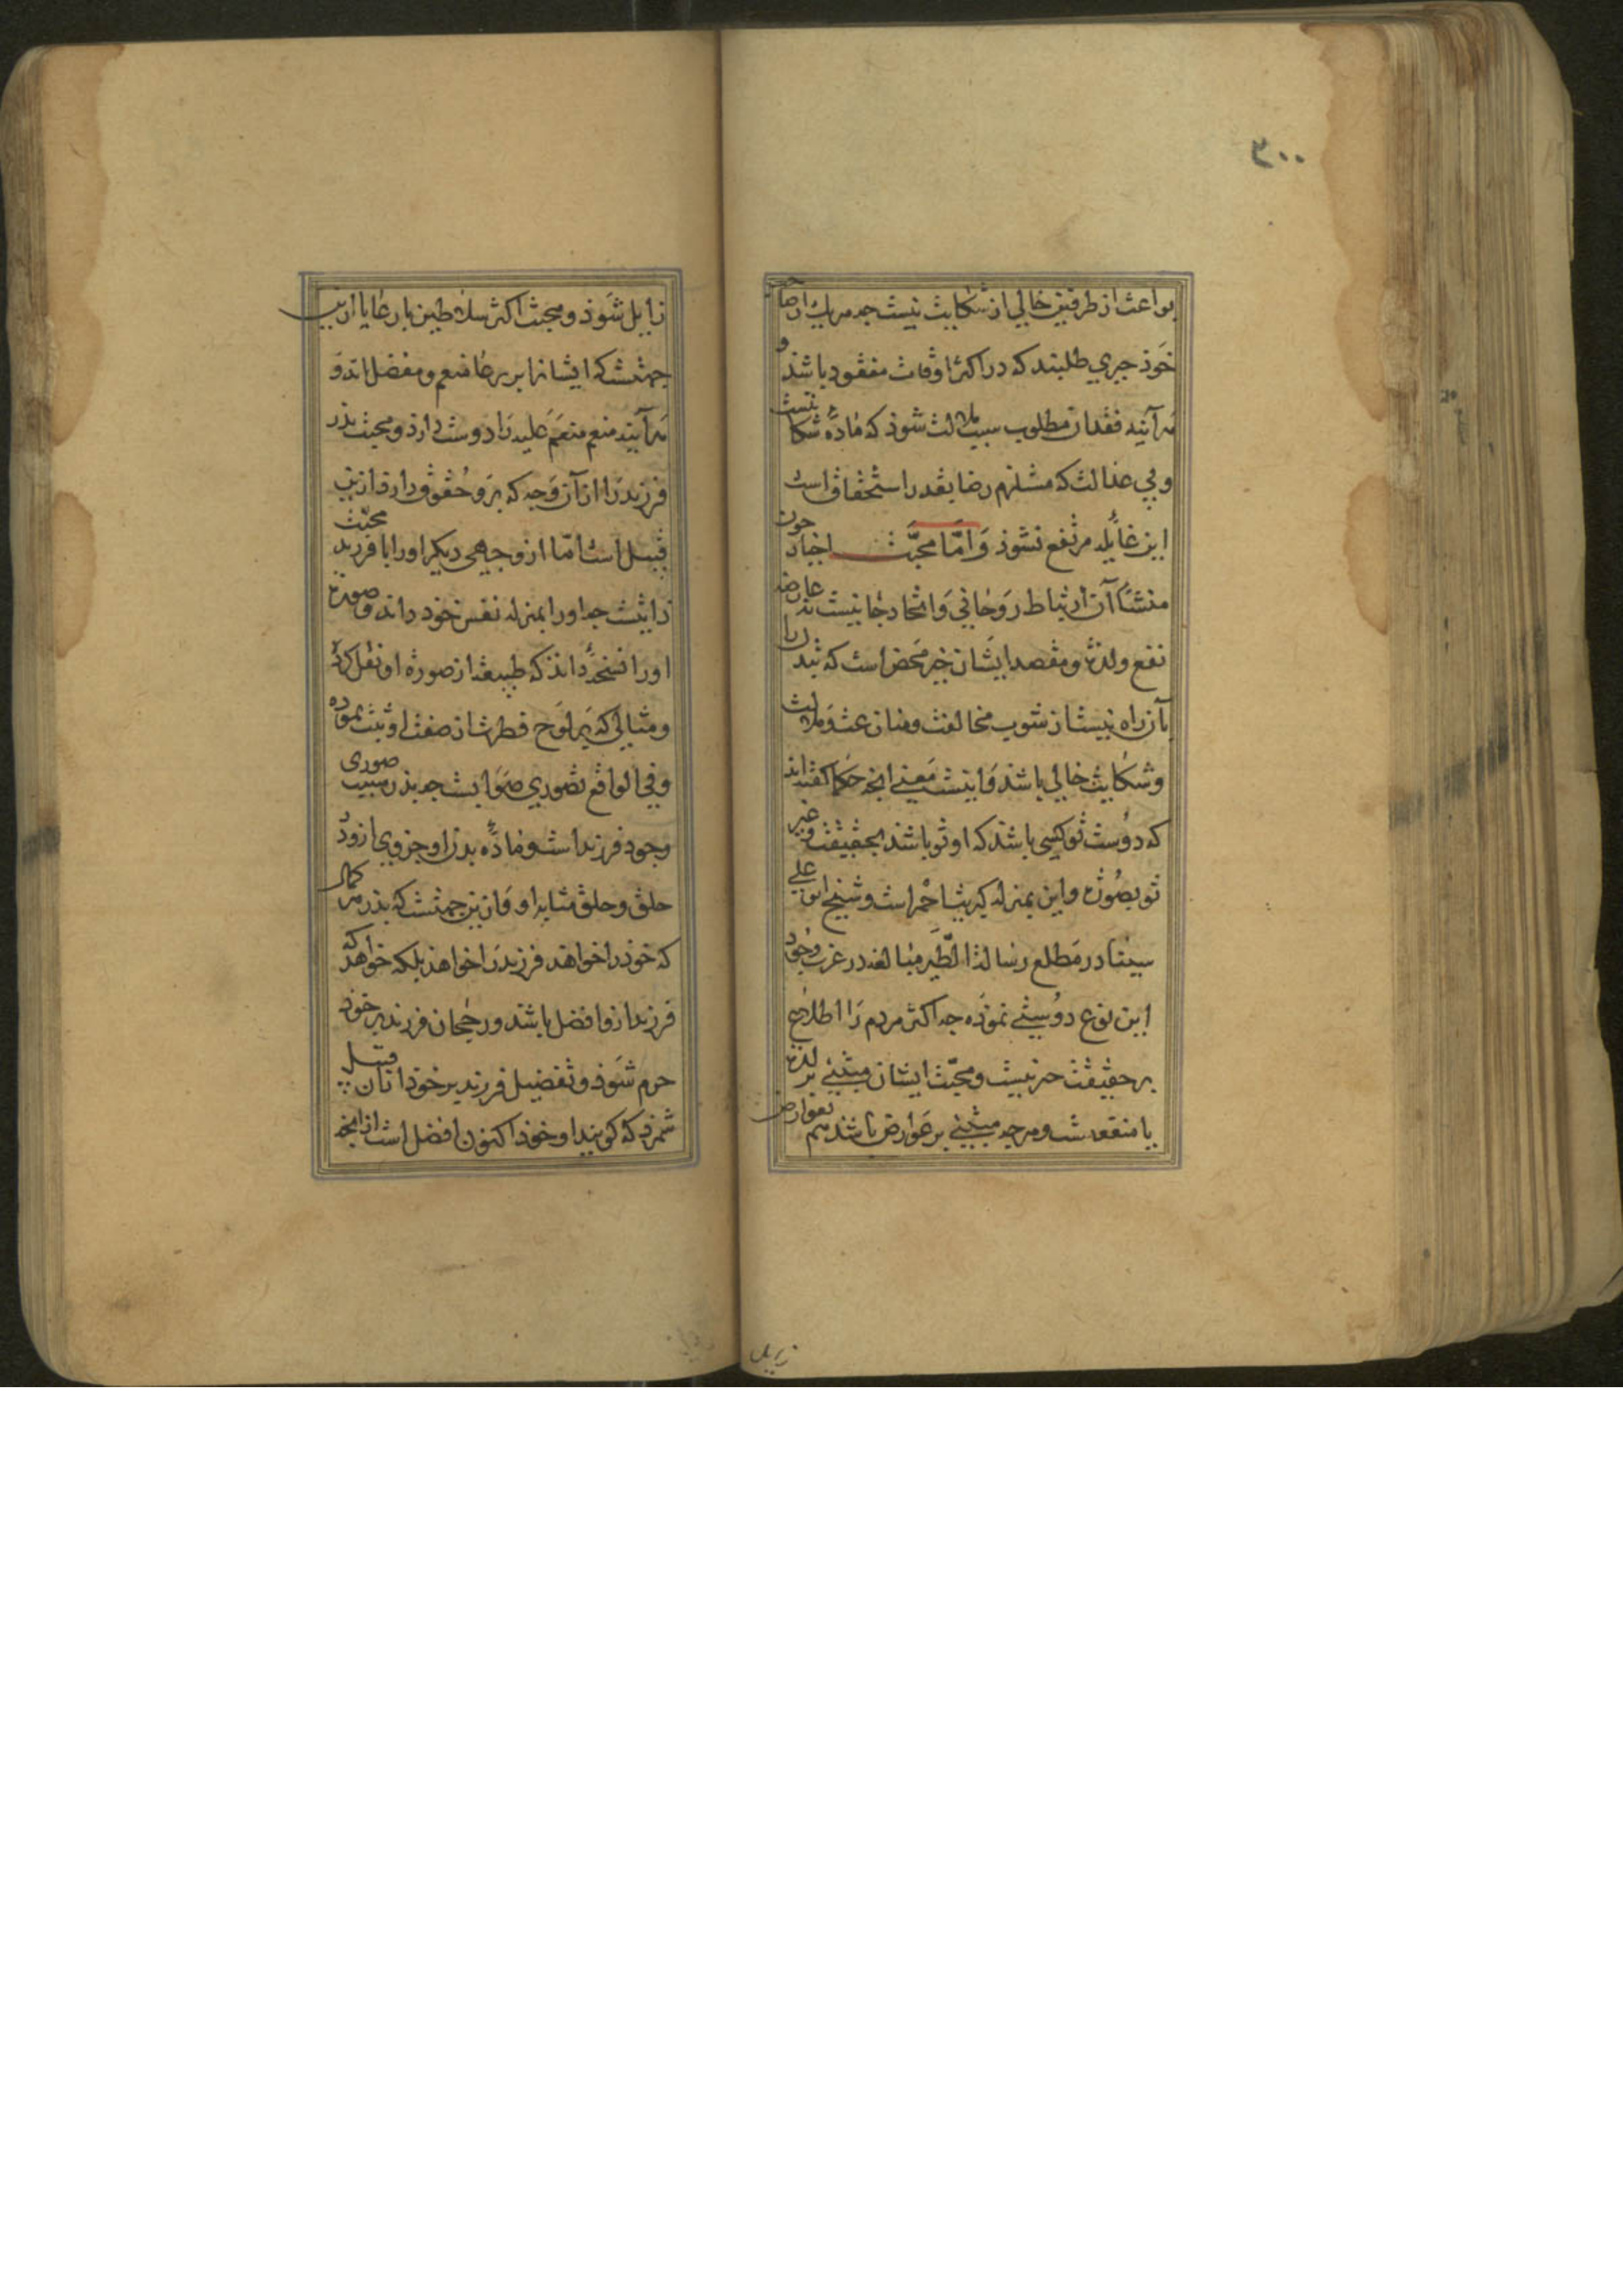 ۳۰۰
بواعث از طرفین خالی از شکایت نیست جه هریك از صاحب
خوذ جیزی طلبند که در اکثر اوقات مفقود باشذ و
هرآینه فقدان مطلوب سبب ملالت شوذ که ماده شکایتست
و بی عدالت که مستلزم رضا بقدر استحقاق است
این غایله مرتفع نشوذ وَامّا محبّت اخیار جون
منشأ آن ارتباط روحانی و اتحاد جانیست نه عارضه
نفع و لذة و مقصد ایشان خیر محض است که تبدل را
بآن راه نیست از شوب مخالفت و منازعت و ملالت
و شکایت خالی باشد و اینست معنی انجه حکما کفته اند
که دوست تو کسی باشد که او تو باشد بحقیقت و غیر
تو بصورة و این بمنزله کبریت احمر است و شیخ ابو علی
سینا در مطلع رسالة الطّیر مبالغه در عزت وجود
این نوع دوستی نموده جه اکثر مردم را اطلاع
بر حقیقت خیر نیست و محبّت ایشان مبتنی بر لذة
یا منفعت و هرجه مبتنی بر عوارض باشد هم بعوارض
زایل
زایل شوذ و محبت اکثر سلاطین با رعایا ازین
جهتست که ایشانرا بر رعایا منعم و مفضل اند و
هرآینه منعم منعم علیه را دوست دارذ و محبت بذر
فرزند را از آن وجه که برو حقوق دارد ازین
قبیل است امّا از وجهی دیکر او را با فرزند محبّت
ذاتیست جه او را بمنزله نفس خوذ داند و صورة
او را نسخه داند که طبیعة از صورة او نقل کرده
و مثالی که بر لوح فطرت از صفت او ثبت نموده
و فی الواقع تصوری صوابست جه بذر سبب صوری
وجود فرزند است و ماده بدن او جزوی ازو و در
خلق و خلق مشابه او و ازین جهتست که بذر هر کمال
که خوذ را خواهد فرزند را خواهد بلکه خواهد که
فرزند ازو افضل باشد و رجحان فرزند بر خود
خرم شوذ و تفضیل فرزند بر خوذ از آن قبیل
شمرد که کویند او خوذ اکنون افضل است از انجه